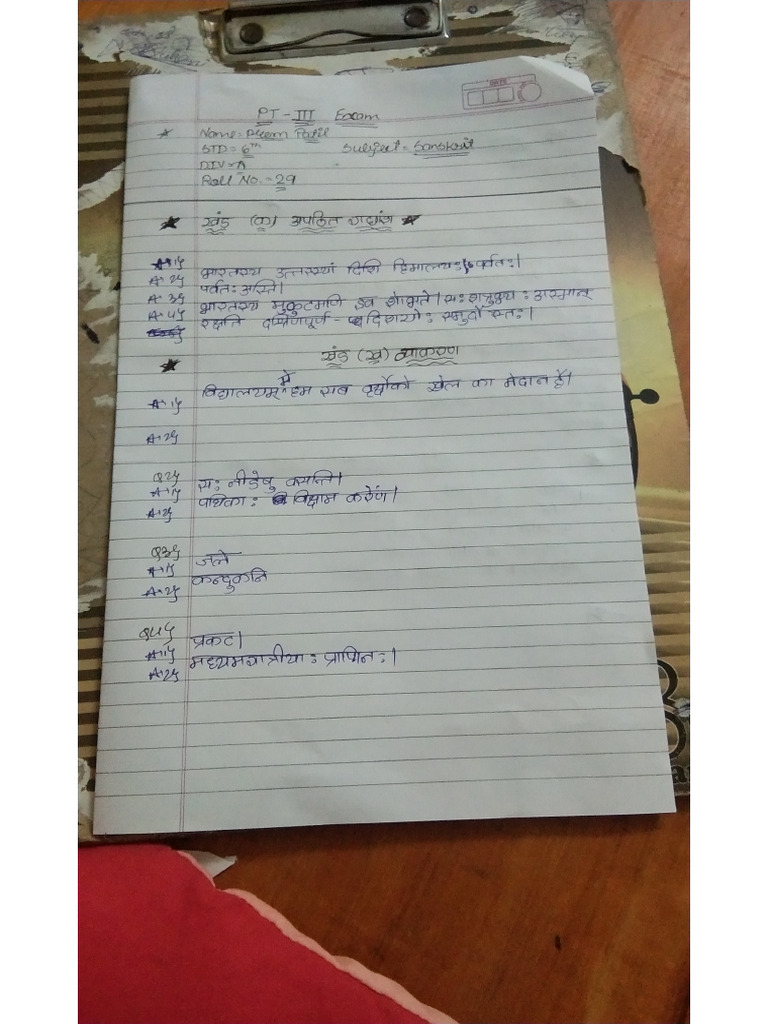 DATE
PT - III Exam
Name = Patil
STD = 6th Subject = Sanskrit
DIV = A
Roll No. = 29
खंड (क) अपठित गद्यांश
A.1) भारतस्य उत्तरस्यां दिशि हिमालयः पर्वतः।
A.2) पर्वतः अस्ति।
A.3) भारतस्य मुकुटमणि इव शोभते। सः शत्रुभ्यः अस्मान्
A.4) रक्षति दक्षिणपूर्ण - दिशयोः समुद्रौ स्तः।
खंड (ख) व्याकरण
A.1) विद्यालयम् में हम सब का मेदान हैं।
A.2)
Q2)
A.1) सः नीडेषु वसन्ति।
A.2) पथिकाः विश्राम
Q3)
A.1) जले
A.2) कन्दुकनि
Q4)
A.1) प्रकट।
A.2) प्राणिनः।